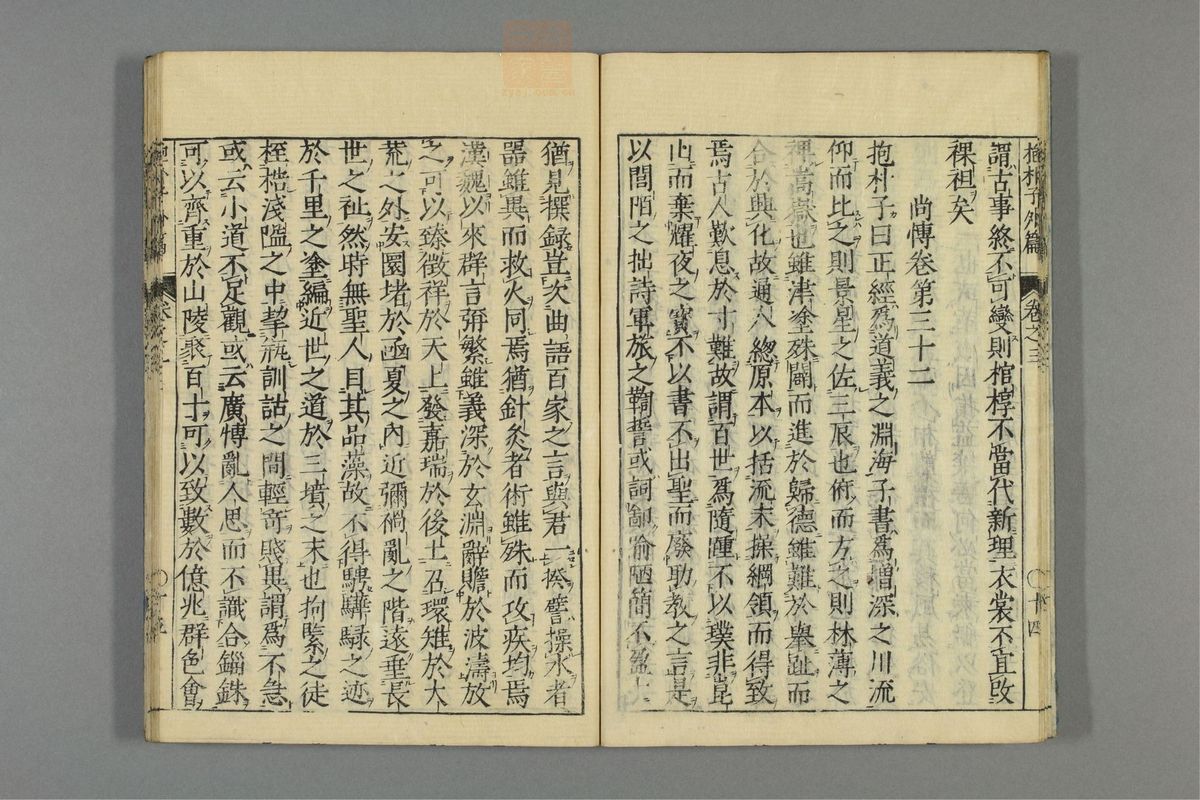 抱朴子外篇 卷之三 〇十四
謂古事終不可變則棺椁不當代薪埋衣裳不宜改
裸袒矣
尚博卷第三十二
抱朴子曰正經爲道義之淵海子書爲增深之川流
仰而比之則景星之佐三辰也俯而方之則林薄之
裨嵩嶽也雖津塗殊闢而進於歸德雖難於舉趾而
合於興化故通人總原本以括流末操綱領而得致
焉古人歎息於才難故謂百世爲隨踵不以璞非崑
山而棄耀夜之寳不以書不出聖而廢助教之言是
以閭陌之拙詩軍旅之鞫誓或詞鄙喻陋簡不盈十
猶見撰録豈次曲語百家之言與君一揆譬操水者
器雖異而救火同焉猶針灸者術雖殊而攻疾均焉
漢魏以來群言彌繁雖義深於玄淵辭贍於波濤放
之可以臻徵祥於天上發嘉瑞於後土召環雉於大
荒之外安圜堵於函夏之內近彌禍亂之階遠垂長
世之祉然時無聖人目其品藻故不得騁驊騄之迹
於千里之塗編近世之道於三墳之末也拘繫之徒
桎梏淺隘之中挈瓶訓詁之間輕奇賤異謂爲不急
或云小道不足觀或云廣博亂人思而不識合錙銖
可以齊重於山陵聚百十可以致數於億兆群色會